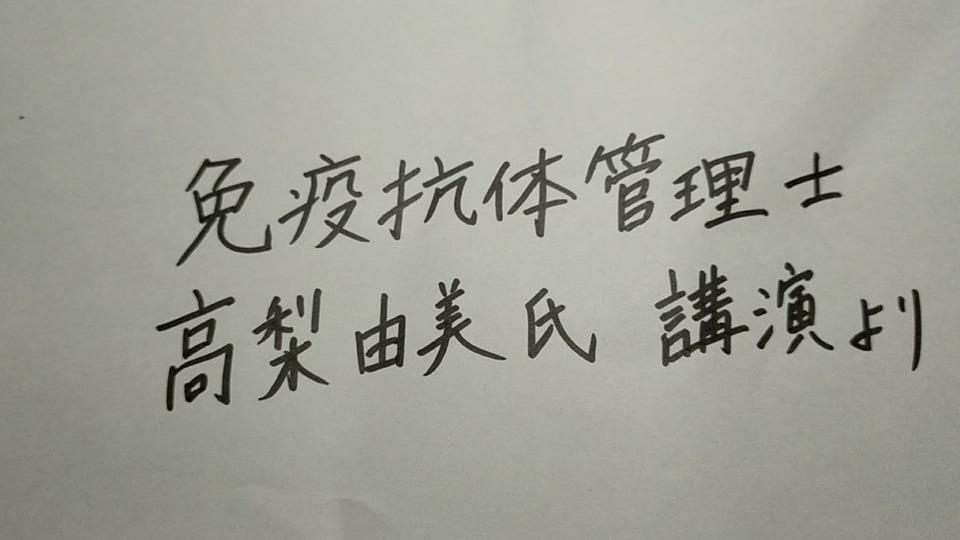 免疫抗体管理士
高梨由美氏 講演より